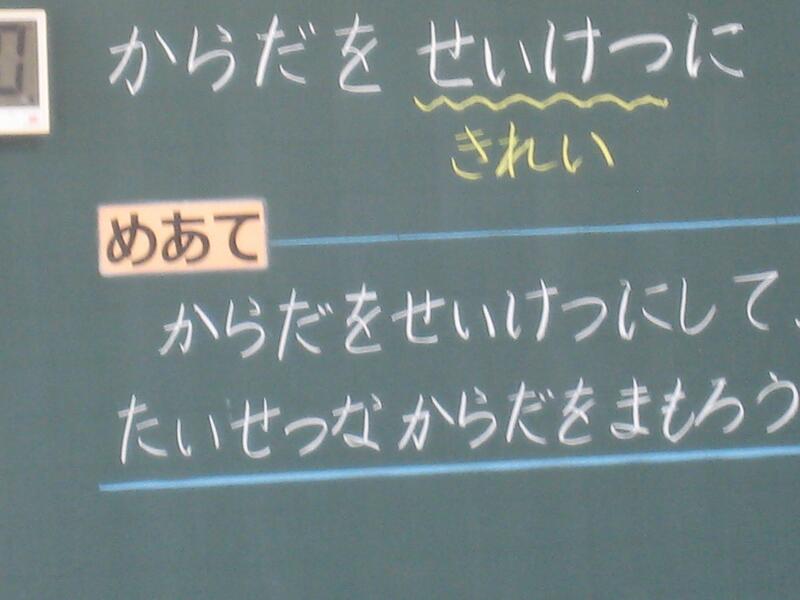 からだを せいけつに
きれい
めあて
からだをせいけつにして、
たいせつな からだをまもろう